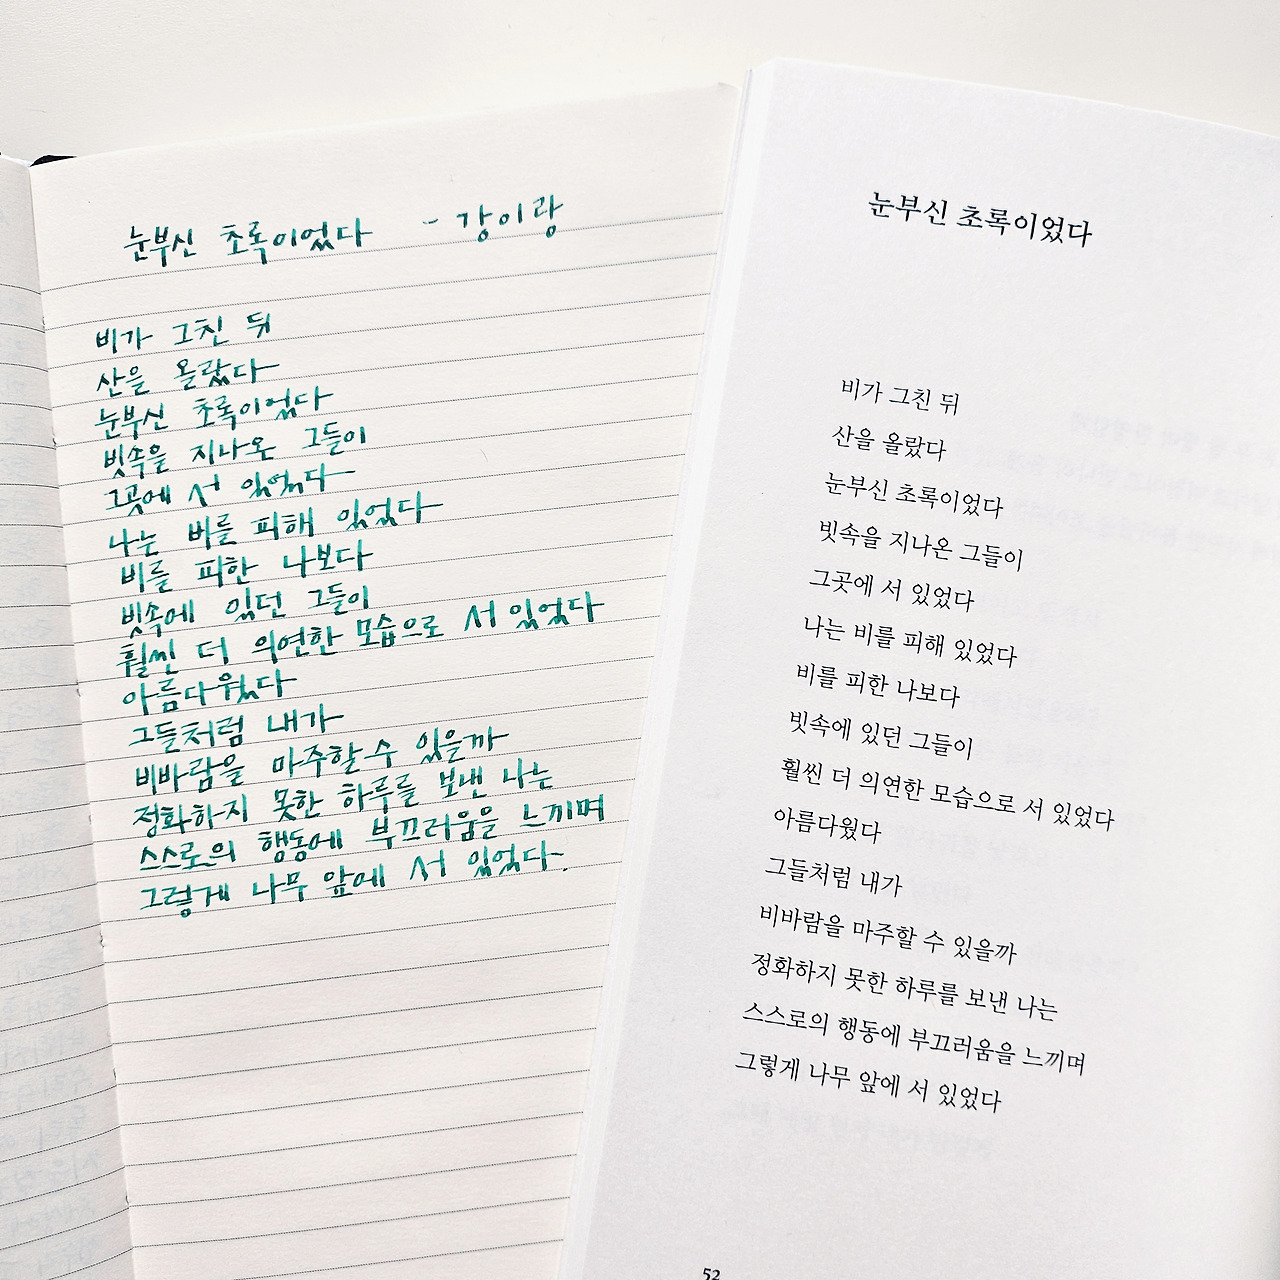 눈부신 초록이었다 - 강이랑
비가 그친 뒤
산을 올랐다
눈부신 초록이었다
빗속을 지나온 그들이
그곳에 서 있었다
나는 비를 피해 있었다
비를 피한 나보다
빗속에 있던 그들이
훨씬 더 의연한 모습으로 서 있었다
아름다웠다
그들처럼 내가
비바람을 마주할 수 있을까
정화하지 못한 하루를 보낸 나는
스스로의 행동에 부끄러움을 느끼며
그렇게 나무 앞에 서 있었다.
눈부신 초록이었다
비가 그친 뒤
산을 올랐다
눈부신 초록이었다
빗속을 지나온 그들이
그곳에 서 있었다
나는 비를 피해 있었다
비를 피한 나보다
빗속에 있던 그들이
훨씬 더 의연한 모습으로 서 있었다
아름다웠다
그들처럼 내가
비바람을 마주할 수 있을까
정화하지 못한 하루를 보낸 나는
스스로의 행동에 부끄러움을 느끼며
그렇게 나무 앞에 서 있었다
52